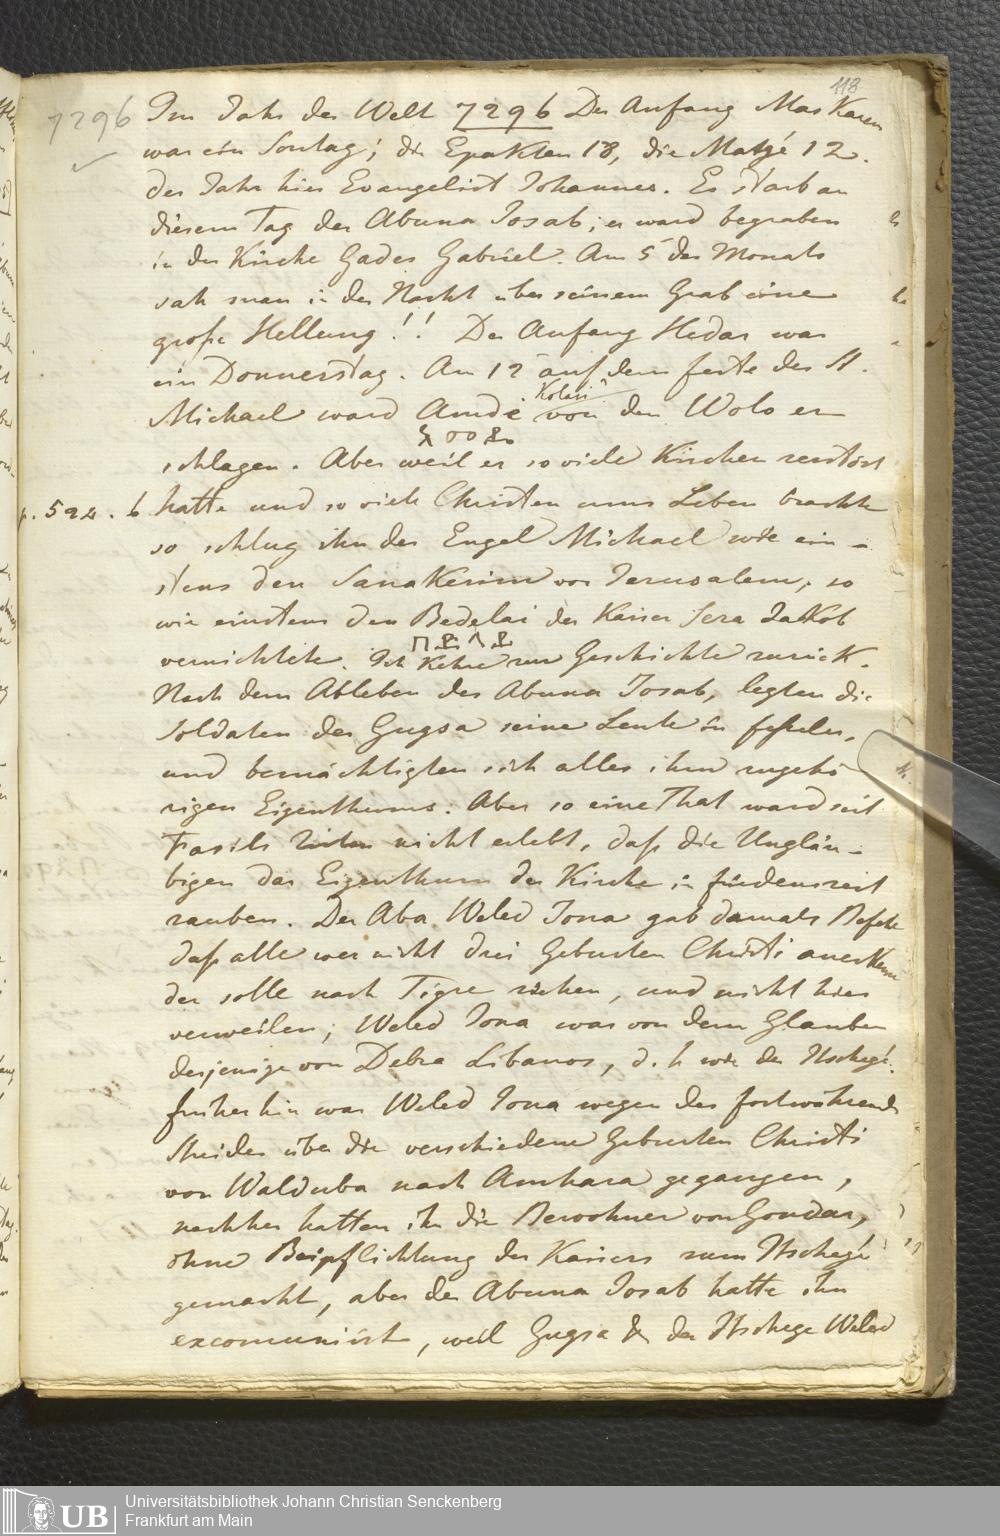 118
7296 Im Jahr der Welt 7296 Der Anfang Maskarem
war ein Sontag; die Epakten 18, die Matgé 12.
der Jahr hies Evangelist Johannes. Es starb an
diesem Tag der Abuna Josab; er ward begraben
in der Kirche Gades Gabriel. Am 5 des Monats
sah man in der Nacht über seinem Grab eine
große Hellung!! Der Anfang Hedar war
ein Donnerstag. Am 12 auf dem feste des St.
Kolasi
Michael ward Amde von den Wolo er
schlagen. Aber weil er so viele Kirchen zerstört
p. 592. b hatte und so viele Christen ums Leben brachte
so schlug ihn der Engel Michael wie ein-
stens den Sanakerim vor Jerusalem, so
wie einstens den Bedelai der Kaiser Sera Jakob
vernichtete. Ich Kehre zur Geschichte zurück.
Nach dem Ableben des Abuna Josab, legten die
Soldaten des Gugsa seine Leute in fesseln,
und bemächtigten sich alles ihm zugehö
rigen Eigenthums. Aber so eine That ward seit
Fasils Zeiten nicht erlebt, daß die Ungläu-
bigen das Eigenthum der Kirche in friedenszeit
rauben. Der Aba Weled Jona gab damals Befehl
daß alle wer nicht drei Geburten Christi anerkenne
der solle nach Tigre ziehen, und nicht hier
verweilen; Weled Jona war von dem Glauben
derjenige von Debra Libanos, d. h wie der Itschegé.
früherhin war Weled Jona wegen des fortwährend
Streides über die verschiedene Geburten Christi
von Walduba nach Amhara gegangen,
nachher hatten ihn die Bewohner von Gondar,
ohne Beipflichtung des Kaisers zum Itschegé
gemacht, aber der Abuna Josab hatte ihn
excomunicirt, weil Gugsa & der Itschege Weled
UB
Universitätsbibliothek Johann Christian Senckenberg
Frankfurt am Main